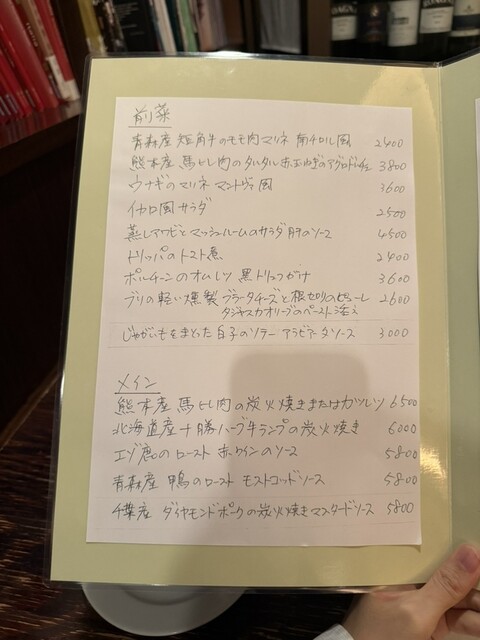 前菜
青森産 短角牛のモモ肉マリネ 南チロル風 2400
熊本産 馬ヒレ肉のタルタル 赤玉ねぎのアグロドルチェ 3800
ウナギのマリネ マントヴァ風 3600
イカロ風サラダ 2500
蒸しアワビとマッシュルームのサラダ 肝のソース 4500
トリッパのトマト煮 2400
ポルチーニのオムレツ 黒トリュフがけ 3600
ブリの軽い燻製 ブラータチーズと根セロリのピューレ 2600
タジャスカオリーブのペースト添え
じゃがいもをまとった白子のソテー アラビアータソース 3000
メイン
熊本産 馬ヒレ肉の炭火焼きまたはカツレツ 6500
北海道産十勝ハーブ牛ランプの炭火焼き 6000
エゾ鹿のロースト 赤ワインのソース 5800
青森産 鴨のロースト モストコットソース 5800
千葉産 ダイヤモンドポークの炭火焼きマスタードソース 5800